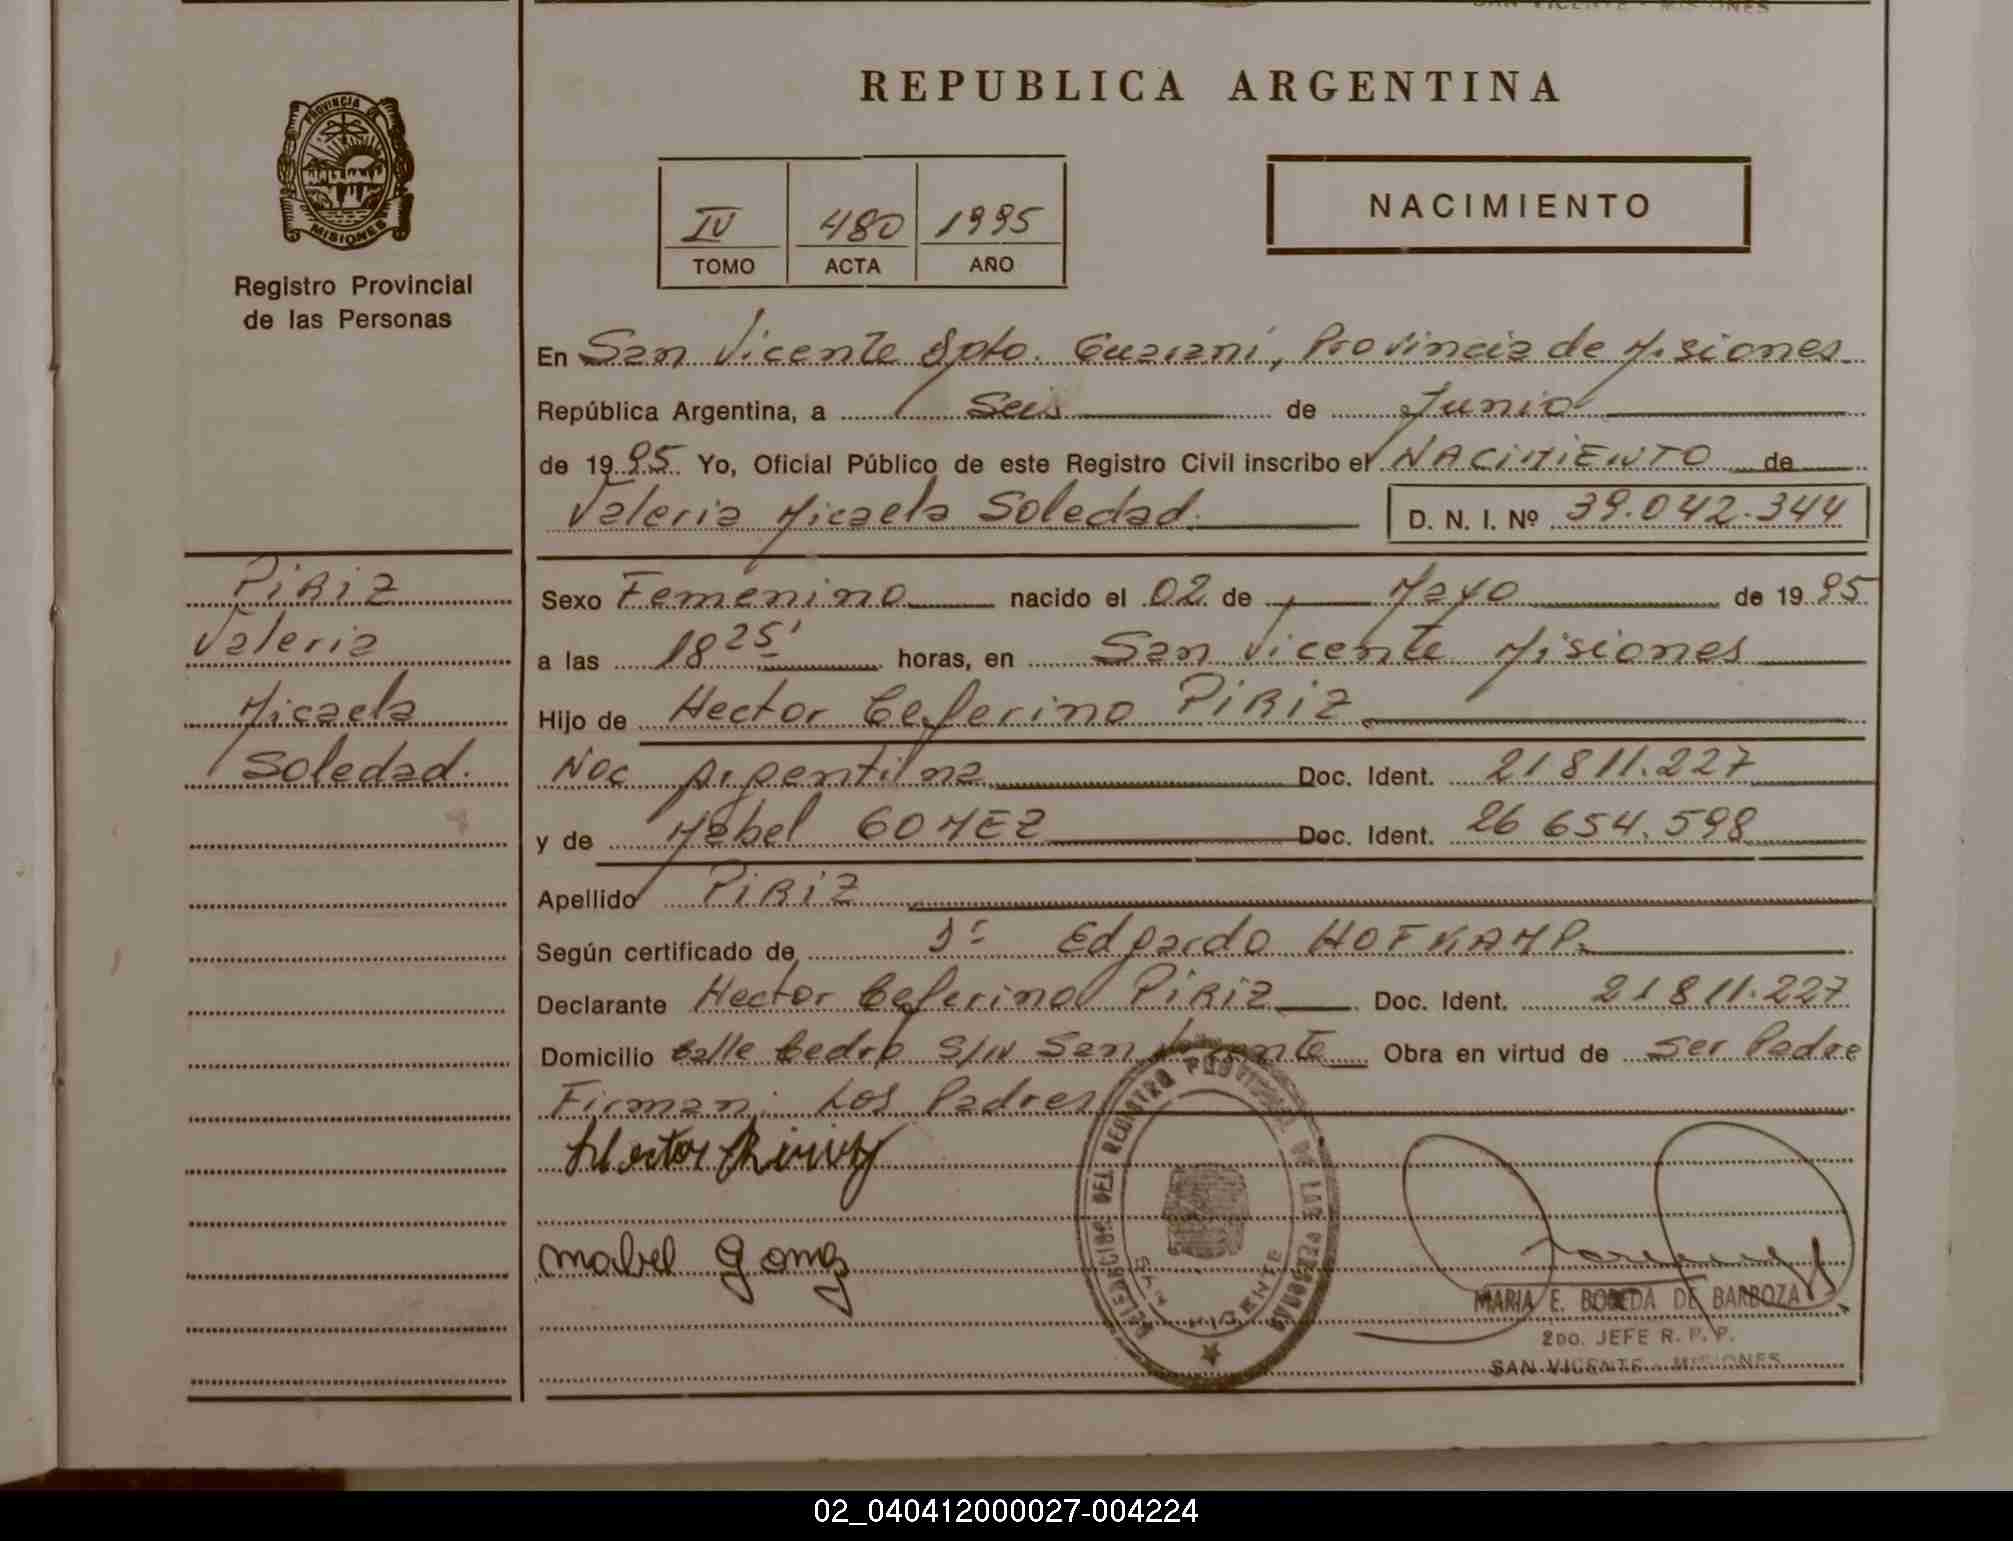 SAN VICENTE - MISIONES
REPUBLICA ARGENTINA
PROVINCIA DE
MISIONES
Registro Provincial
de las Personas
IV 480 1995
TOMO ACTA AÑO
NACIMIENTO
En San Vicente Dpto. Guarani, Provincia de Misiones
República Argentina, a Seis de Junio
de 1995 Yo, Oficial Público de este Registro Civil inscribo el NACIMIENTO de
Valeria Micaela Soledad. D. N. I. Nº 39.042.344
PIRIZ
Valeria
Micaela
Soledad.
Sexo Femenino nacido el 02 de Mayo de 1995
a las 18 25' horas, en San Vicente Misiones
Hijo de Hector Ceferino PIRIZ
Nac Argentina Doc. Ident. 21 811.227
y de Mabel GOMEZ Doc. Ident. 26 654.598
Apellido PIRIZ
Según certificado de Dr Edgardo HOFKAMP.
Declarante Hector Ceferino PIRIZ Doc. Ident. 21 811.227
Domicilio Calle Cedro S/N San Vicente Obra en virtud de Ser Padre
Firman: Los Padres
Hector Piriz
Mabel Gomez
DELEGACION DEL REGISTRO PROVINCIAL DE LAS PERSONAS
SAN VICENTE
MARIA E. BOBEDA DE BARBOZA
2DO. JEFE R. P. P.
SAN VICENTE - MISIONES
02_040412000027-004224